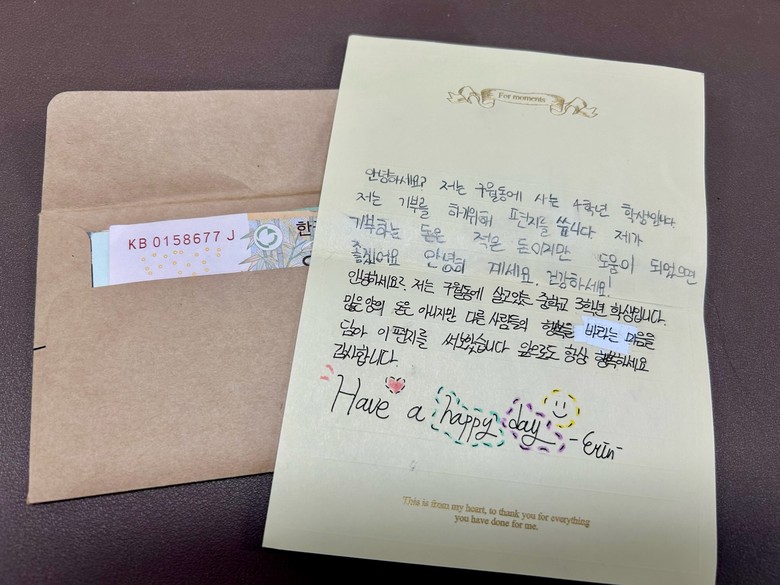 For moments
안녕하세요? 저는 구월동에 사는 4학년 학생입니다
저는 기부를 하기위해 편지를 씁니다 제가
기부하는 돈은 적은 돈이지만 도움이 되었으면
좋겠어요 안녕히 계세요. 건강하세요!
안녕하세요? 저는 구월동에 살고있는 중학교 3학년 학생입니다.
많은 양의 돈은 아니지만 다른 사람들의 행복을 바라는 마음을
담아 이 편지를 써보았습니다 앞으로도 항상 행복하세요
감사합니다.
Have a happy day -Erin-
This is from my heart, to thank you for everything
you have done for me.
KB 0158677 J
한국